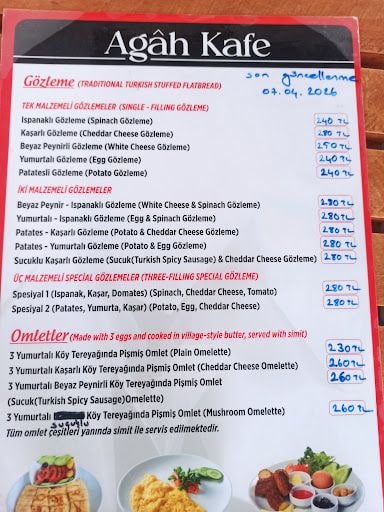 Agâh Kafe
Gözleme (TRADITIONAL TURKISH STUFFED FLATBREAD) son güncelleme
07.04.2026
TEK MALZEMELİ GÖZLEMELER (SINGLE - FILLING GÖZLEME)
Ispanaklı Gözleme (Spinach Gözleme) 240 TL
Kaşarlı Gözleme (Cheddar Cheese Gözleme) 280 TL
Beyaz Peynirli Gözleme (White Cheese Gözleme) 250 TL
Yumurtalı Gözleme (Egg Gözleme) 240 TL
Patatesli Gözleme (Potato Gözleme) 240 TL
İKİ MALZEMELİ GÖZLEMELER
Beyaz Peynir - Ispanaklı Gözleme (White Cheese & Spinach Gözleme) 280 TL
Yumurtalı - Ispanaklı Gözleme (Egg & Spinach Gözleme) 280 TL
Patates - Kaşarlı Gözleme (Potato & Cheddar Cheese Gözleme) 280 TL
Patates - Yumurtalı Gözleme (Potato & Egg Gözleme) 280 TL
Sucuklu Kaşarlı Gözleme (Sucuk(Turkish Spicy Sausage) & Cheddar Cheese Gözleme) 280 TL
ÜÇ MALZEMELİ SPECİAL GÖZLEMELER (THREE-FILLING SPECIAL GÖZLEME)
Spesiyal 1 (Ispanak, Kaşar, Domates) (Spinach, Cheddar Cheese, Tomato) 280 TL
Spesiyal 2 (Patates, Yumurta, Kaşar) (Potato, Egg, Cheddar Cheese) 280 TL
Omletler (Made with 3 eggs and cooked in village-style butter, served with simit)
3 Yumurtalı Köy Tereyağında Pişmiş Omlet (Plain Omelette) 230 TL
3 Yumurtalı Kaşarlı Köy Tereyağında Pişmiş Omlet (Cheddar Cheese Omelette) 260 TL
3 Yumurtalı Beyaz Peynirli Köy Tereyağında Pişmiş Omlet 260 TL
(Sucuk(Turkish Spicy Sausage)Omelette)
3 Yumurtalı Köy Tereyağında Pişmiş Omlet (Mushroom Omelette) 260 TL
suçuğlu
Tüm omlet çeşitleri yanında simit ile servis edilmektedir.